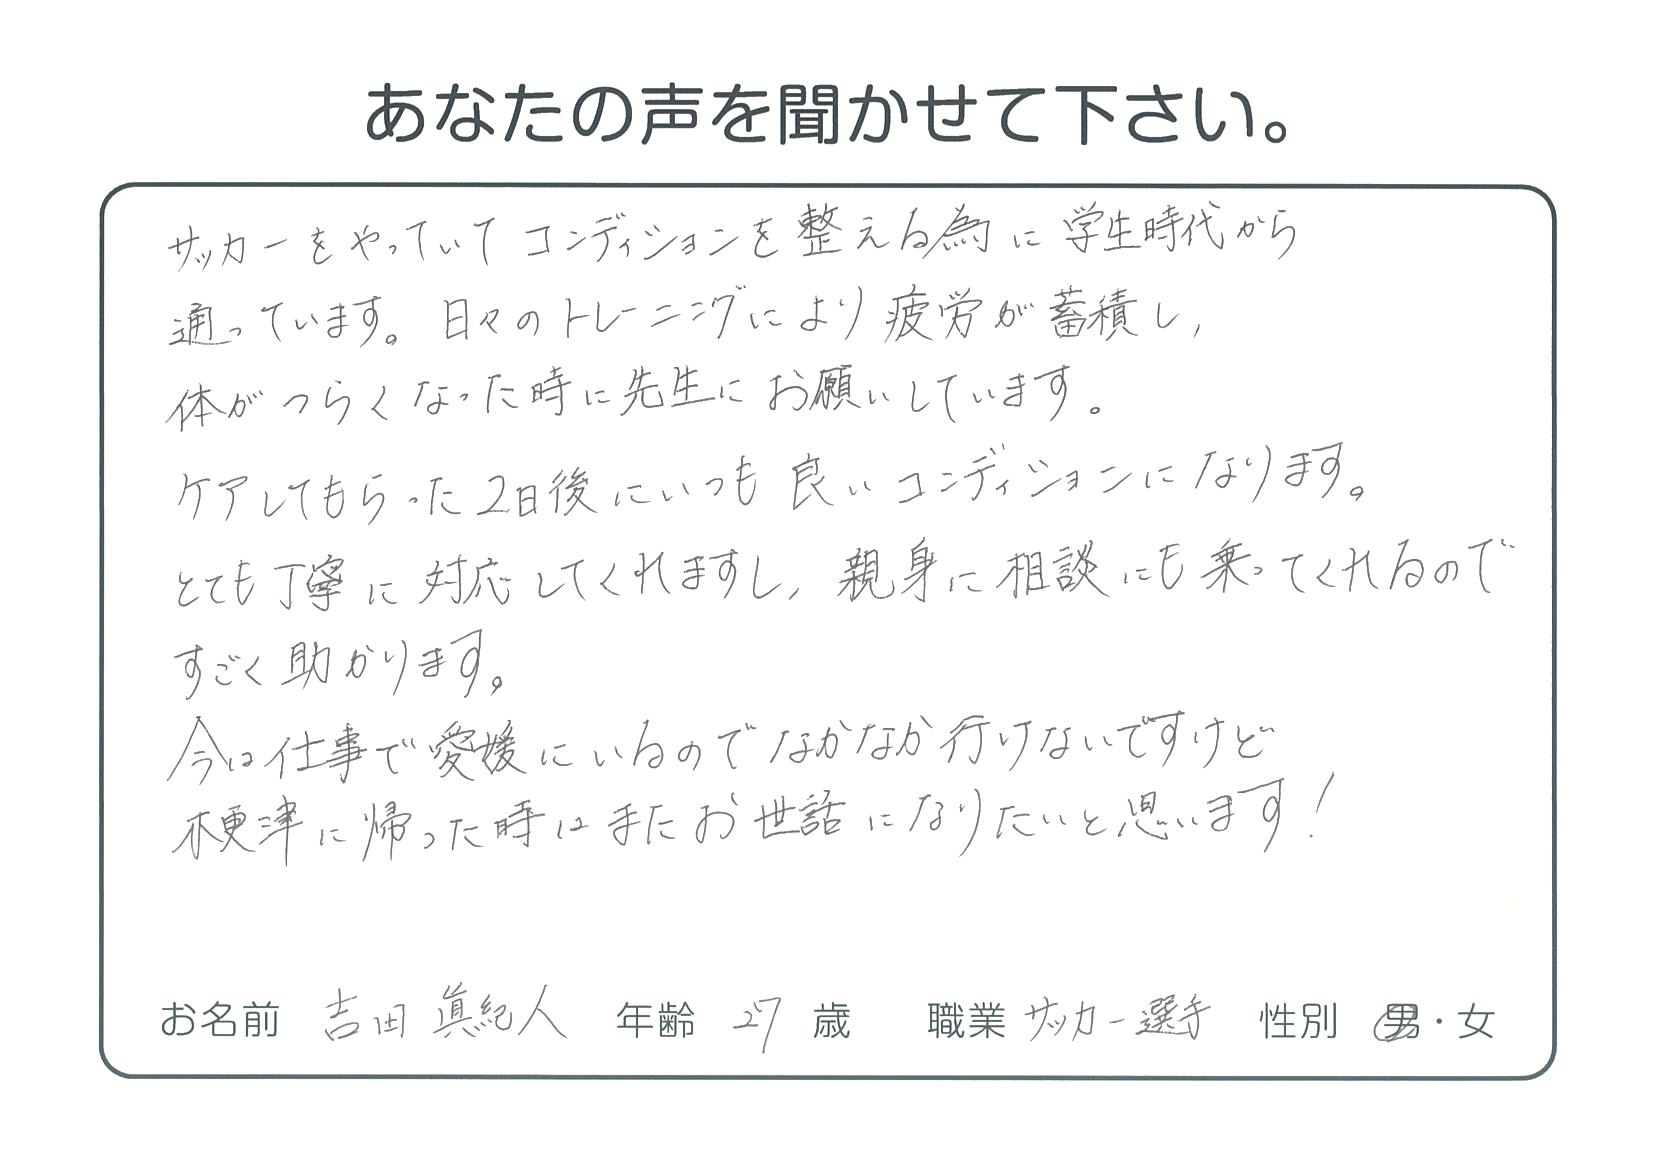 あなたの声を聞かせて下さい。
サッカーをやっていてコンディションを整える為に学生時代から
通っています。日々のトレーニングにより疲労が蓄積し、
体がつらくなった時に先生にお願いしています。
ケアしてもらった2日後にいつも良いコンディションになります。
とても丁寧に対応してくれますし、親身に相談にも乗ってくれるので
すごく助かります。
今は仕事で愛媛にいるのでなかなか行けないですけど
木更津に帰った時はまたお世話になりたいと思います！
お名前 吉田 眞紀人 年齢 27 歳 職業 サッカー選手 性別 男・女